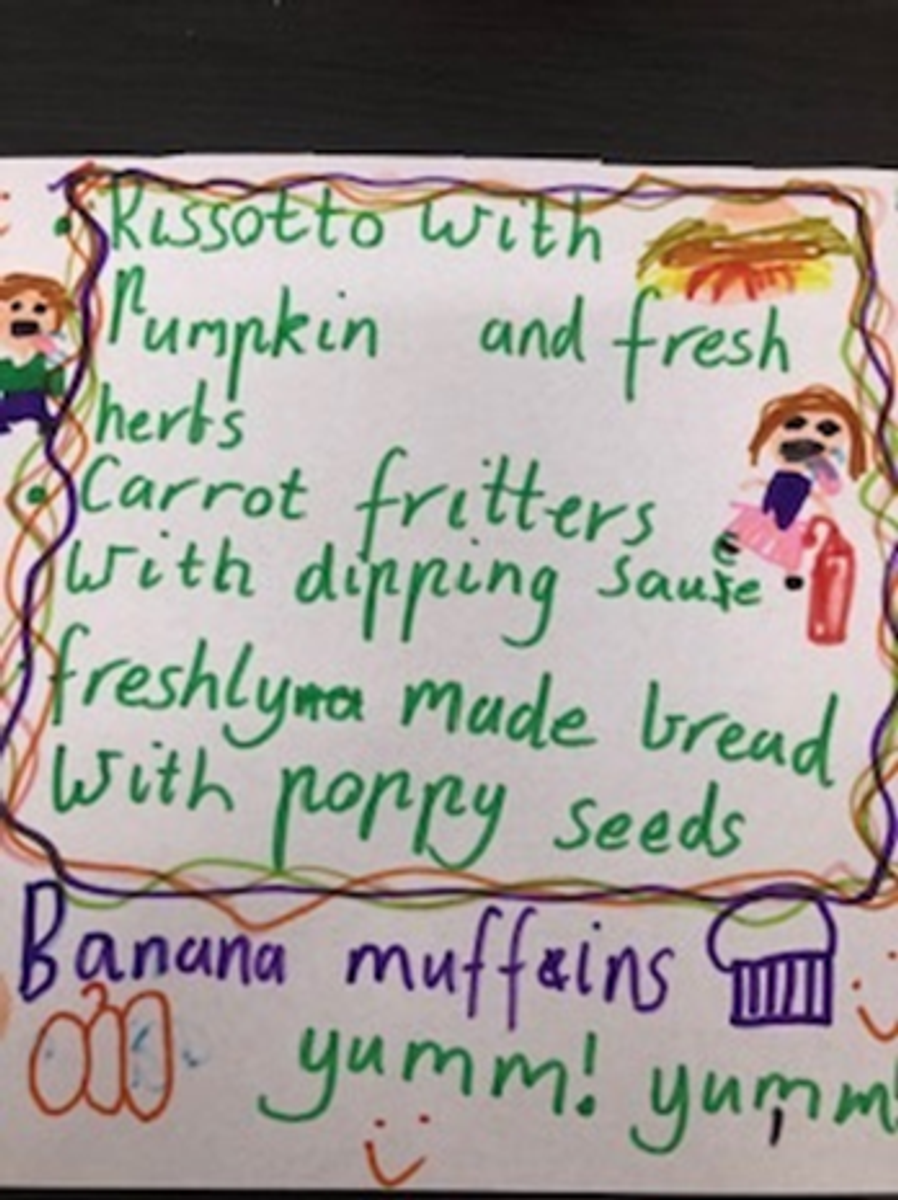 Rissotto with
Pumpkin and fresh
herbs
Carrot fritters
with dipping sause
freshly made bread
with poppy seeds
Banana muffins
yumm! yumm!